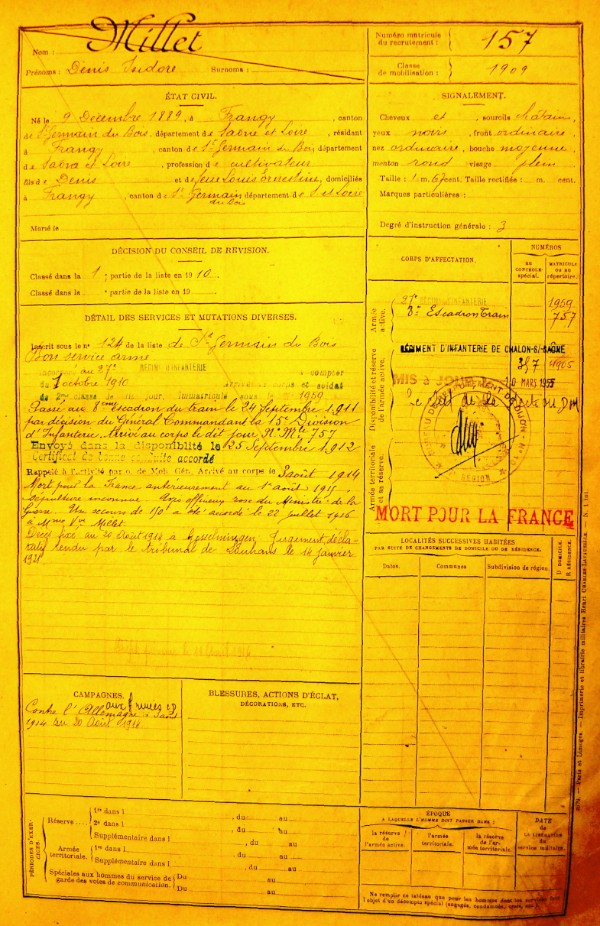 Nom : Millet
Prénoms : Denis Isidore Surnoms :
Numéro matricule
du recrutement : 157
Classe
de mobilisation : 1909
ÉTAT CIVIL.
Né le 9 Décembre 1889, à Frangy, canton
de St Germain du Bois, département d e Saône et Loire, résidant
à Frangy, canton de St Germain du Bois, département
d e Saône et Loire, profession d e cultivateur
fils de Denis et de Jeux Louis Ernestine, domiciliés
à Frangy, canton de St Germain du Bois, département de S et Loire
Marié le
SIGNALEMENT.
Cheveux et , sourcils châtains
yeux noirs, front ordinaire
nez ordinaire, bouche moyenne
menton rond visage plein
Taille : 1 m. 67 cent. Taille rectifiée : m. cent.
Marques particulières :
Degré d'instruction générale : 3
DÉCISION DU CONSEIL DE RÉVISION.
Classé dans la 1 partie de la liste en 1910.
Classé dans la partie de la liste en 19
CORPS D'AFFECTATION.
NUMÉROS
AU CONTRÔLE spécial.
MATRICULE OU AU répertoire.
Armée active.
27e RÉGIMENT D'INFANTERIE 1959
8e Escadron Train 757
Disponibilité et réserve de l'armée active.
RÉGIMENT D'INFANTERIE DE CHALON-S/-SAÔNE
MIS À JOUR
10 MARS 1955
Armée territoriale et sa réserve.
MORT POUR LA FRANCE
DÉTAIL DES SERVICES ET MUTATIONS DIVERSES.
Inscrit sous le n° 124 de la liste de St Germain du Bois
Bon service armé
au 27e RÉGIMENT D'INFANTERIE à compter
du 7 octobre 1910 et soldat
de 2me classe le dit jour. Immatriculé sous le 1959
Passé au 8ème Escadron du train le 24 Septembre 1911
par décision du Général Commandant la 15e Division
d'Infanterie. Arrivé au corps le dit jour N° Mle 757
Envoyé dans la disponibilité le 25 Septembre 1912
Certificat de bonne conduite accordé
Rappelé à l'activité par o. de Mob. Gén. Arrivé au corps le 3 août 1914
Mort pour la France antérieurement au 1er août 1915
Sépulture inconnue. Avis officieux du Ministre de la
Guerre. Un secours de 150f a été accordé le 22 juillet 1916
à Mme Vve Millet.
Décès fixé au 20 Août 1914 à Jugement décla-
ratif rendu par le tribunal de Louhans le 14 janvier
1921
LOCALITÉS SUCCESSIVES HABITÉES
PAR SUITE DE CHANGEMENTS DE DOMICILE OU DE RÉSIDENCE.
Dates. Communes. Subdivision de région. D. DOMICILE. R. RÉSIDENCE.
CAMPAGNES.
aux armées
Contre l'Allemagne 3 août
1914 au 20 Août 1914
BLESSURES, ACTIONS D'ÉCLAT,
DÉCORATIONS, ETC.
PÉRIODES D'EXERCICES.
Réserve
1re dans l , du au
2e dans l , du au
Supplémentaire dans l , du au
Armée territoriale.
1re dans l , du au
Supplémentaire dans l , du au
Spéciales aux hommes du service de
garde des voies de communication.
Du au
Du au
ÉPOQUE
A LAQUELLE L'HOMME DOIT PASSER DANS :
la réserve de l'armée active.
l'armée territoriale.
la réserve de l'armée territoriale.
DATE
de la LIBÉRATION du service militaire.
Ne remplir ce tableau que pour les hommes dont les services font
l'objet d'un décompte spécial (engagés, condamnés, omis, etc.)
Paris et Limoges. — Imprimerie et librairie militaires Henri CHARLES-LAVAUZELLE.